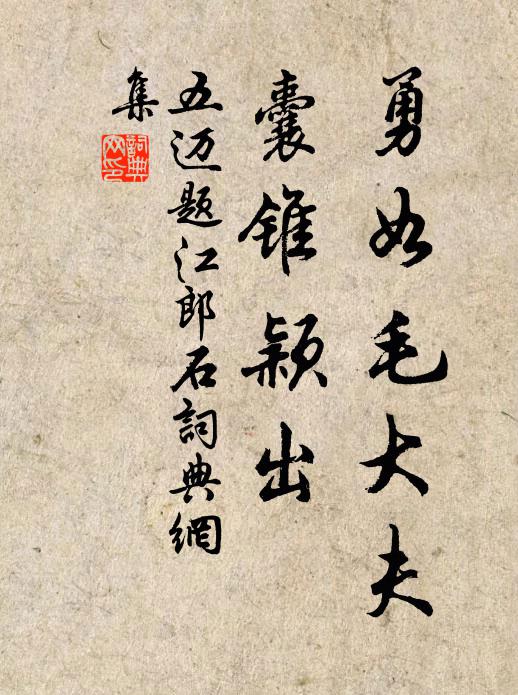 勇如毛大夫
囊锥颖出
五迈题江郎石詞典網
集
詞典网印